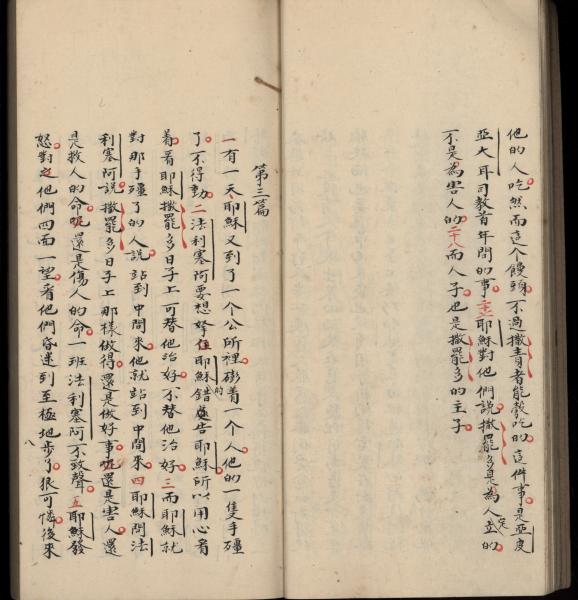 他的人吃然而這个饅頭不過撒責者能彀吃的這件事是亞皮
亞大耳司教首年間的事二七耶穌對他們說撒罷多是為人立定的
不是為害人的二八而人子也是撒罷多的主子
第三篇
一有一天耶穌又到了一个公所裡碰着一个人他的一隻手殭
了不得動二法利塞阿要想拏住耶穌的錯處告耶穌所以用心看
着看耶穌撒罷多日子上可替他治好不替他治好三而耶穌就
對那手殭了的人說站到中間來他就站到中間來四耶穌問法
利塞阿說撒罷多日子上那樣做得還是做好事呢還是害人還
是救人的命呢還是傷人的命一班法利塞阿不敢聲五耶穌發
怒對之他們四面一望看他們昏迷到至極地步了狠可憐後來
八